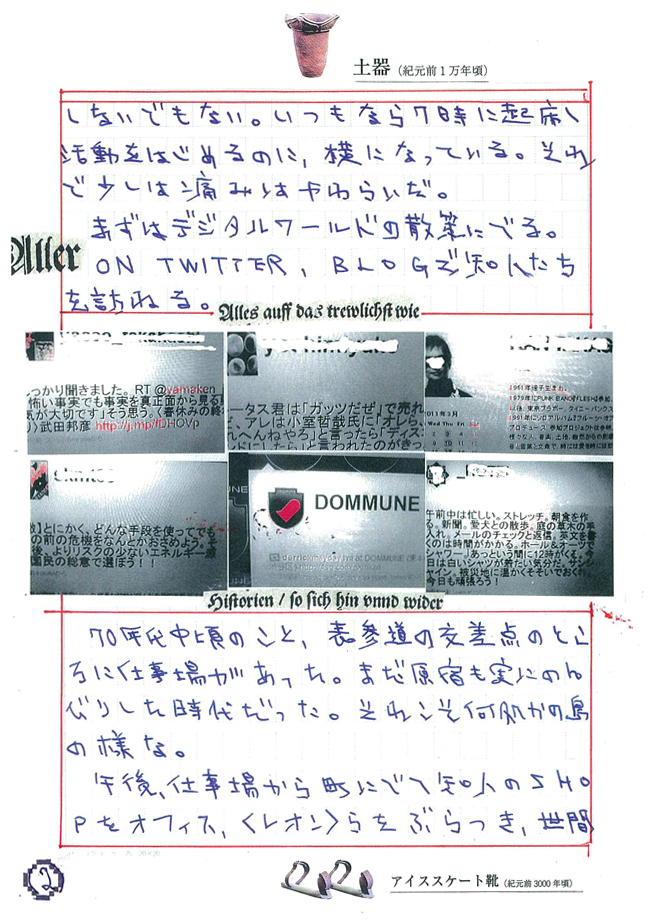 土器（紀元前１万年頃）
しないでもない。いつもなら７時に起床し
活動をはじめるのに，横になっている。それ
で少しは痛みはやわらいだ。
まずはデジタルワールドの散策にでる。
Aller
ON TWITTER，BLOGで知人たち
を訪ねる。
Alles auff das trewlichst wie
っかり聞きました。RT @yamaken
怖い事実でも事実を真正面から見る
気が大切です」そう思う。(春休みの終
)武田邦彦 http://j.mp/fDHOVp
ータス君は「ガッツだぜ」で売れ
ど、アレは小室哲哉氏に「オレら、
れへんねやろ」と言ったら「ディス
ンドにしたら」と言われたのがきっ
1961年
Wed Thu Fri
とにかく、どんな手段を使ってでも
の前の危機をなんとかおさめよう。
後、よりリスクの少ないエネルギー
国民の総意で選ぼう！！
DOMMUNE
午前中は忙しい。ストレッチ。朝食を作
る。新聞。愛犬との散歩。庭の草木の手
入れ。メールのチェックと返信。英文を書
くのは時間がかかる。ホール＆オーツで
シャワー」あっという間に12時がくる。今
日は白いシャツが着たい気分だ。サン
シャイン。被災地に温かくそそいでおくれ。
今日も頑張ろう！
Historien / so sich hin vnnd wider
70年代中頃のこと，表参道の交差点のとこ
ろに仕事場があった。まだ原宿も実にのん
びりした時代だった。それこそ何処かの島
の様な。
午後，仕事場から町にでて知人のSHO
Pをオフィス，〈レオン〉らをぶらつき，世間
アイススケート靴（紀元前3000年頃）